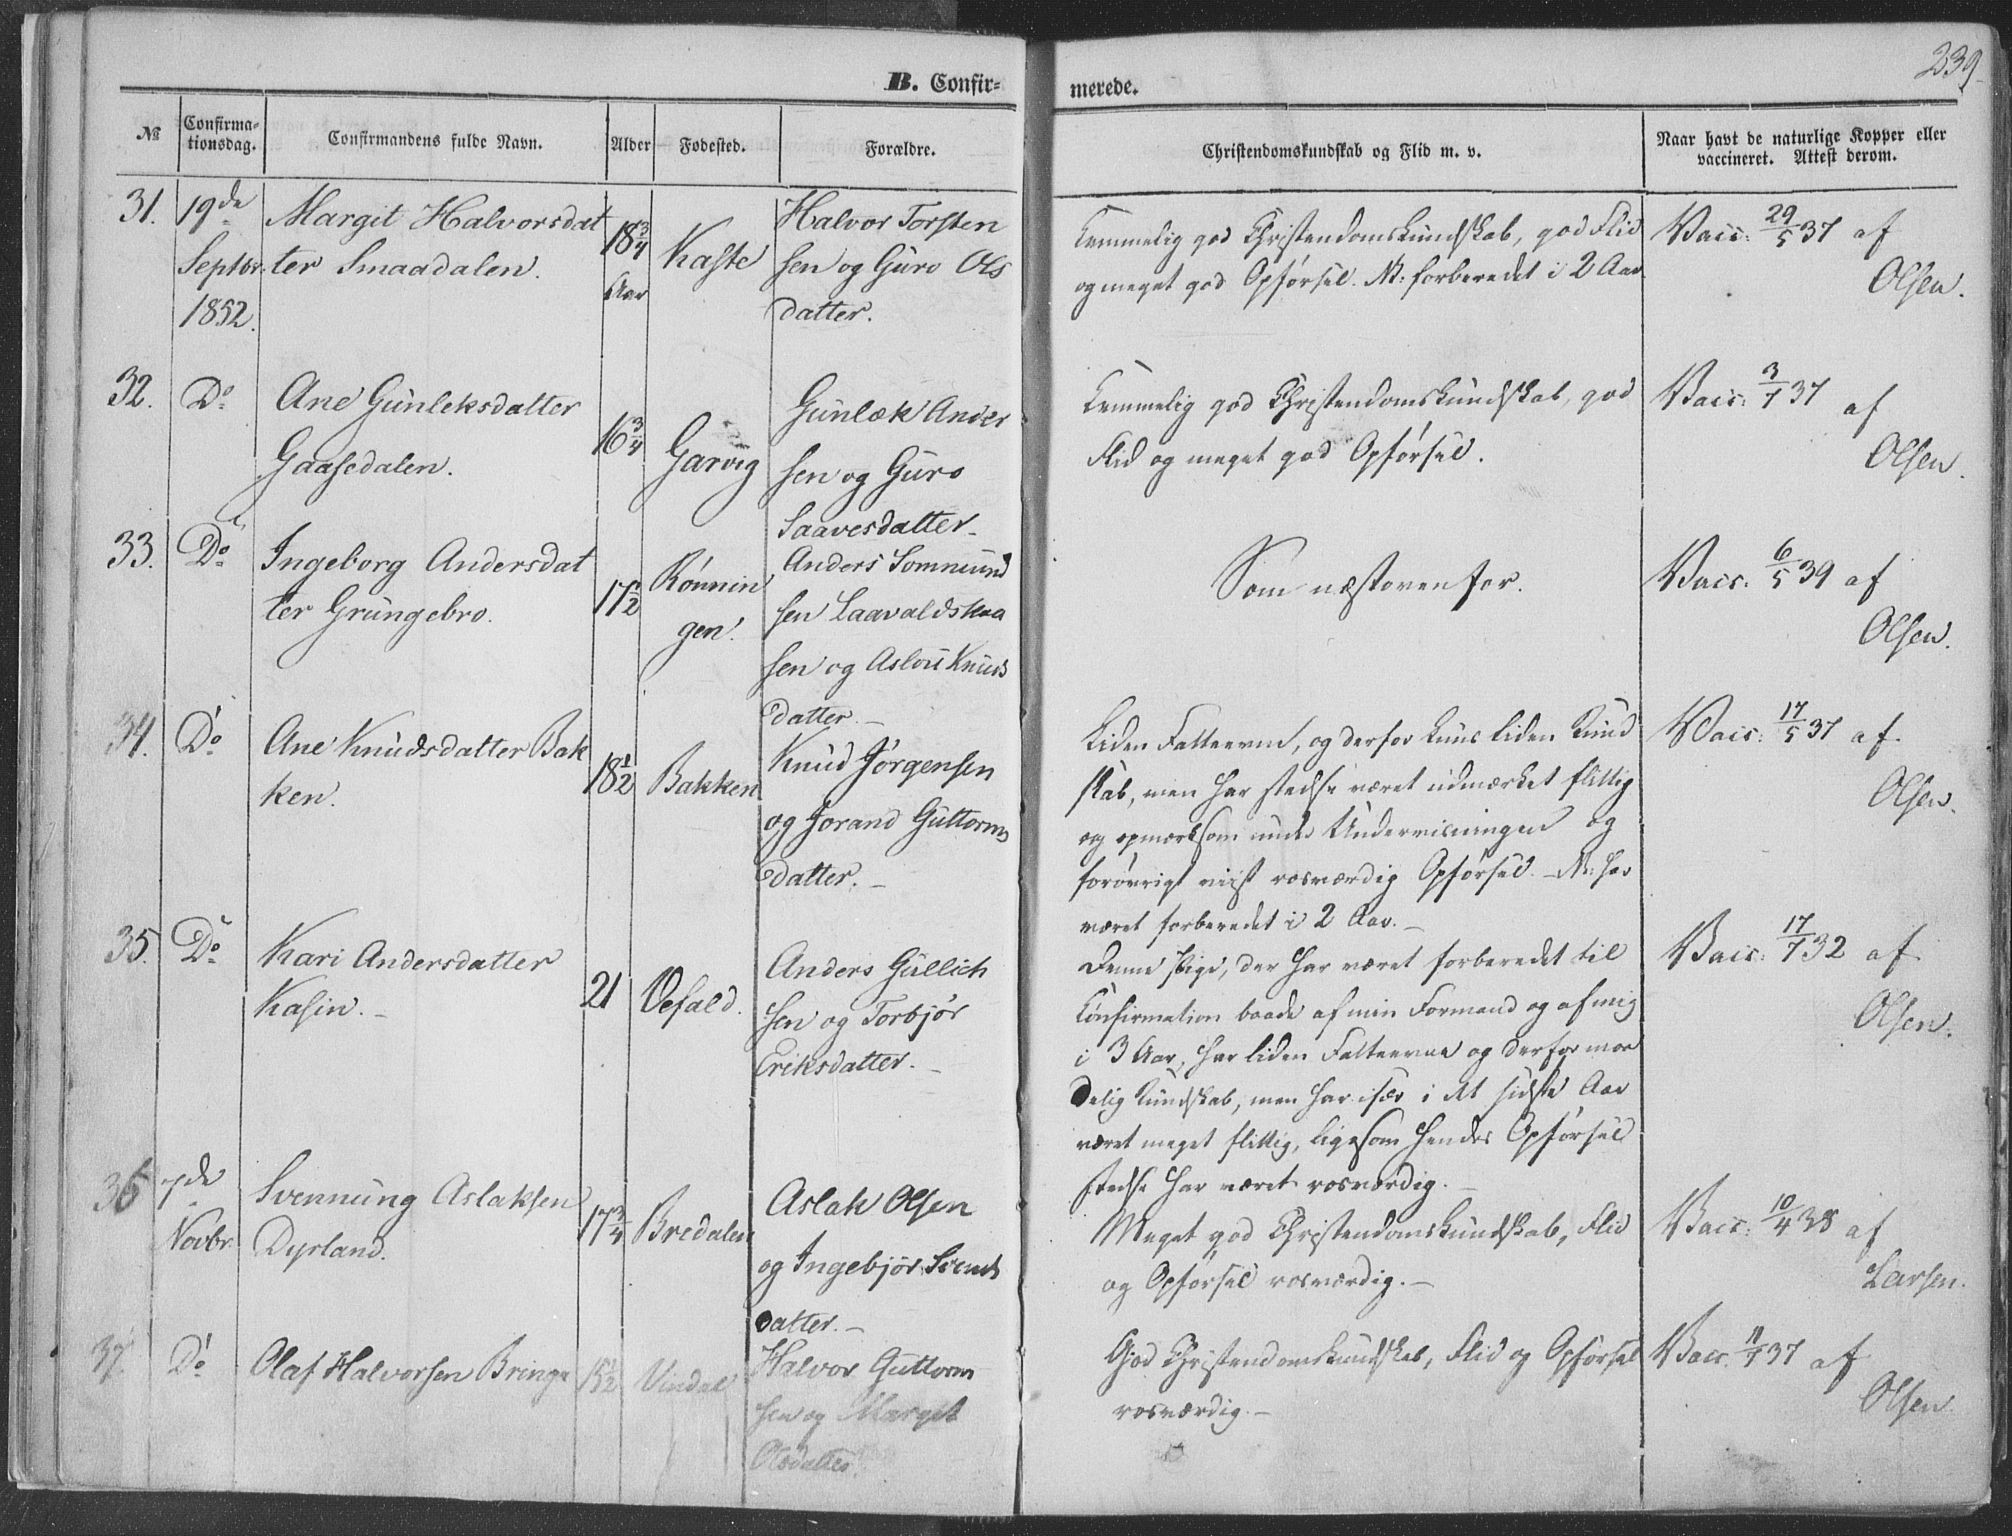 239
B. Confir-
merede.
№ Confirma-tionsdag. Confirmandens fulde Navn. Alder Fødested. Forældre. Christendomskundskab og Flid m. v. Naar havt de naturlige Kopper eller vaccineret. Attest derom.
31. 19de Margit Halvorsdat 18 3/4 Kaste Halvor Torsten
Septbr. ter Smaadalen. Aar sen og Guro Ols
1852. datter.
Temmelig god Christendomskundskab, god Flid
og meget god Opførsel. NB. forberedet i 2 Aar
Vacc. 29/5 37 af
Olsen.
32. Do Ane Gunleksdatter 16 3/4 Garvig Gunlæk Ander
Gaasedalen. sen og Guro
Saavesdatter
Temmelig god Christendomskundskab, god
Flid og meget god Opførsel.
Vacc. 3/7 37 af
Olsen.
33. Do Ingeborg Andersdat 17 1/2 Rønnin Anders Sommund
ter Grungebro. gen. sen Laavaldskaa
sen og Aslou Knuds
datter.
Som næstovenfor.
Vacc. 6/5 39 af
Olsen.
34. Do Ane Knudsdatter Bak 18 1/2 Bakken Knud Jørgensen
ken. og Jorand Guttorms
datter.
Liden Fatteevne, og derfor kuns liden Kund
skab, men har stedse været udmærket flittig
og opmærksom under Underviisningen og
forøvrigt viist rosværdig Opførsel. NB. har
været forberedet i 2 Aar.
Vacc. 17/5 37 af
Olsen.
35. Do Kari Andersdatter 21 Vefald. Anders Gullich
Kasin. sen og Torbjør
Eriksdatter.
Denne Pige, der har været forberedet til
Confirmation baade af min Formand og af mig
i 3 Aar, har liden Fatteevne og derfor maa
delig Kundskab, men har især i det sidste Aar
været meget flittig, ligesom hendes Opførsel
stedse har været rosværdig.
Vacc. 17/7 32 af
Olsen.
36 7de Svennung Aslaksen 17 3/4 Bredalen Aslak Olsen
Novbr. Dyrland. og Ingebjør Svends
datter.
Meget god Christendomskundskab, Flid
og Opførsel rosværdig.
Vacc. 10/4 38 af
Larsen.
37. Do Olaf Halvorsen Bringa 15 1/2 Vindal Halvor Guttorm
sen og Margit
Olsdatter
God Christendomskundskab, Flid og Opførsel
rosværdig.
Vacc. 11/7 37 af
Olsen